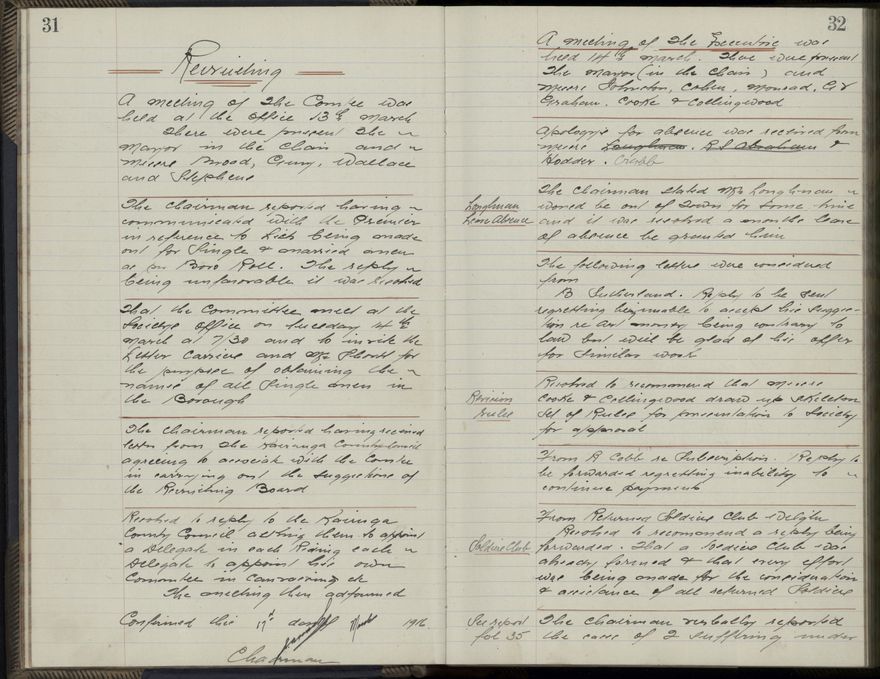 31
Recruiting
A meeting of the Comtee was
held at the Office 13th March
There were present the
Mayor in the Chair and
Messrs Broad, Wallace
and Stephens
The Chairman reported having
communicated with the Premier
in reference to Lists being made
out for Single & married men
as per Boro Roll. The reply
being unfavorable it was resolved
That the Committee meet at the
Society Office on Tuesday 14th
March at 7/30 and to invite the
Letter Carriers and Mr Short for
the purpose of obtaining the
names of all Single men in
the Borough
The Chairman reported having received
letter from the Kairanga County Council
agreeing to associate with the Comtee
in carrying out the suggestions of
the Recruiting Board
Resolved to reply to the Kairanga
County Council asking them to appoint
a Delegate in each Riding each
Delegate to appoint his own
Committee in Canvassing etc
The meeting then adjourned
Confirmed this 17th day of March 1916
Chairman
32
A meeting of the Executive was
held 14th March. There were present
The Mayor (in the Chair) and
Messrs Johnston, Cohen, Monrad,
Graham, Cooke & Collingwood
Apologys for absence was received from
Messrs Loughnan. R S Abraham &
Hodder. Crabb
Loughnan
Leave Absence
The Chairman stated Mr Loughnan
would be out of Town for some time
and it was resolved a months leave
of absence be granted him
The following letters were considered
from
B Sutherland. Reply to be sent
regretting being unable to accept his sugges-
tion re Art money being contrary to
law but will be glad of his offer
for similar work
Revision
Rules
Resolved to recommend that Messrs
Cooke & Collingwood draw up Skeleton
Set of Rules for presentation to Society
for approval
From R Cobb re Subscription. Reply to
be forwarded regretting inability to
continue payments
Soldiers Club
From Returned Soldiers Club Wellgtn
Resolved to recommend a reply being
forwarded. That a Soldiers Club was
already formed & that every effort
was being made for the consideration
& assistance of all returned Soldiers
See report
fol 35
The Chairman verbally reported
the case of 2 suffering under